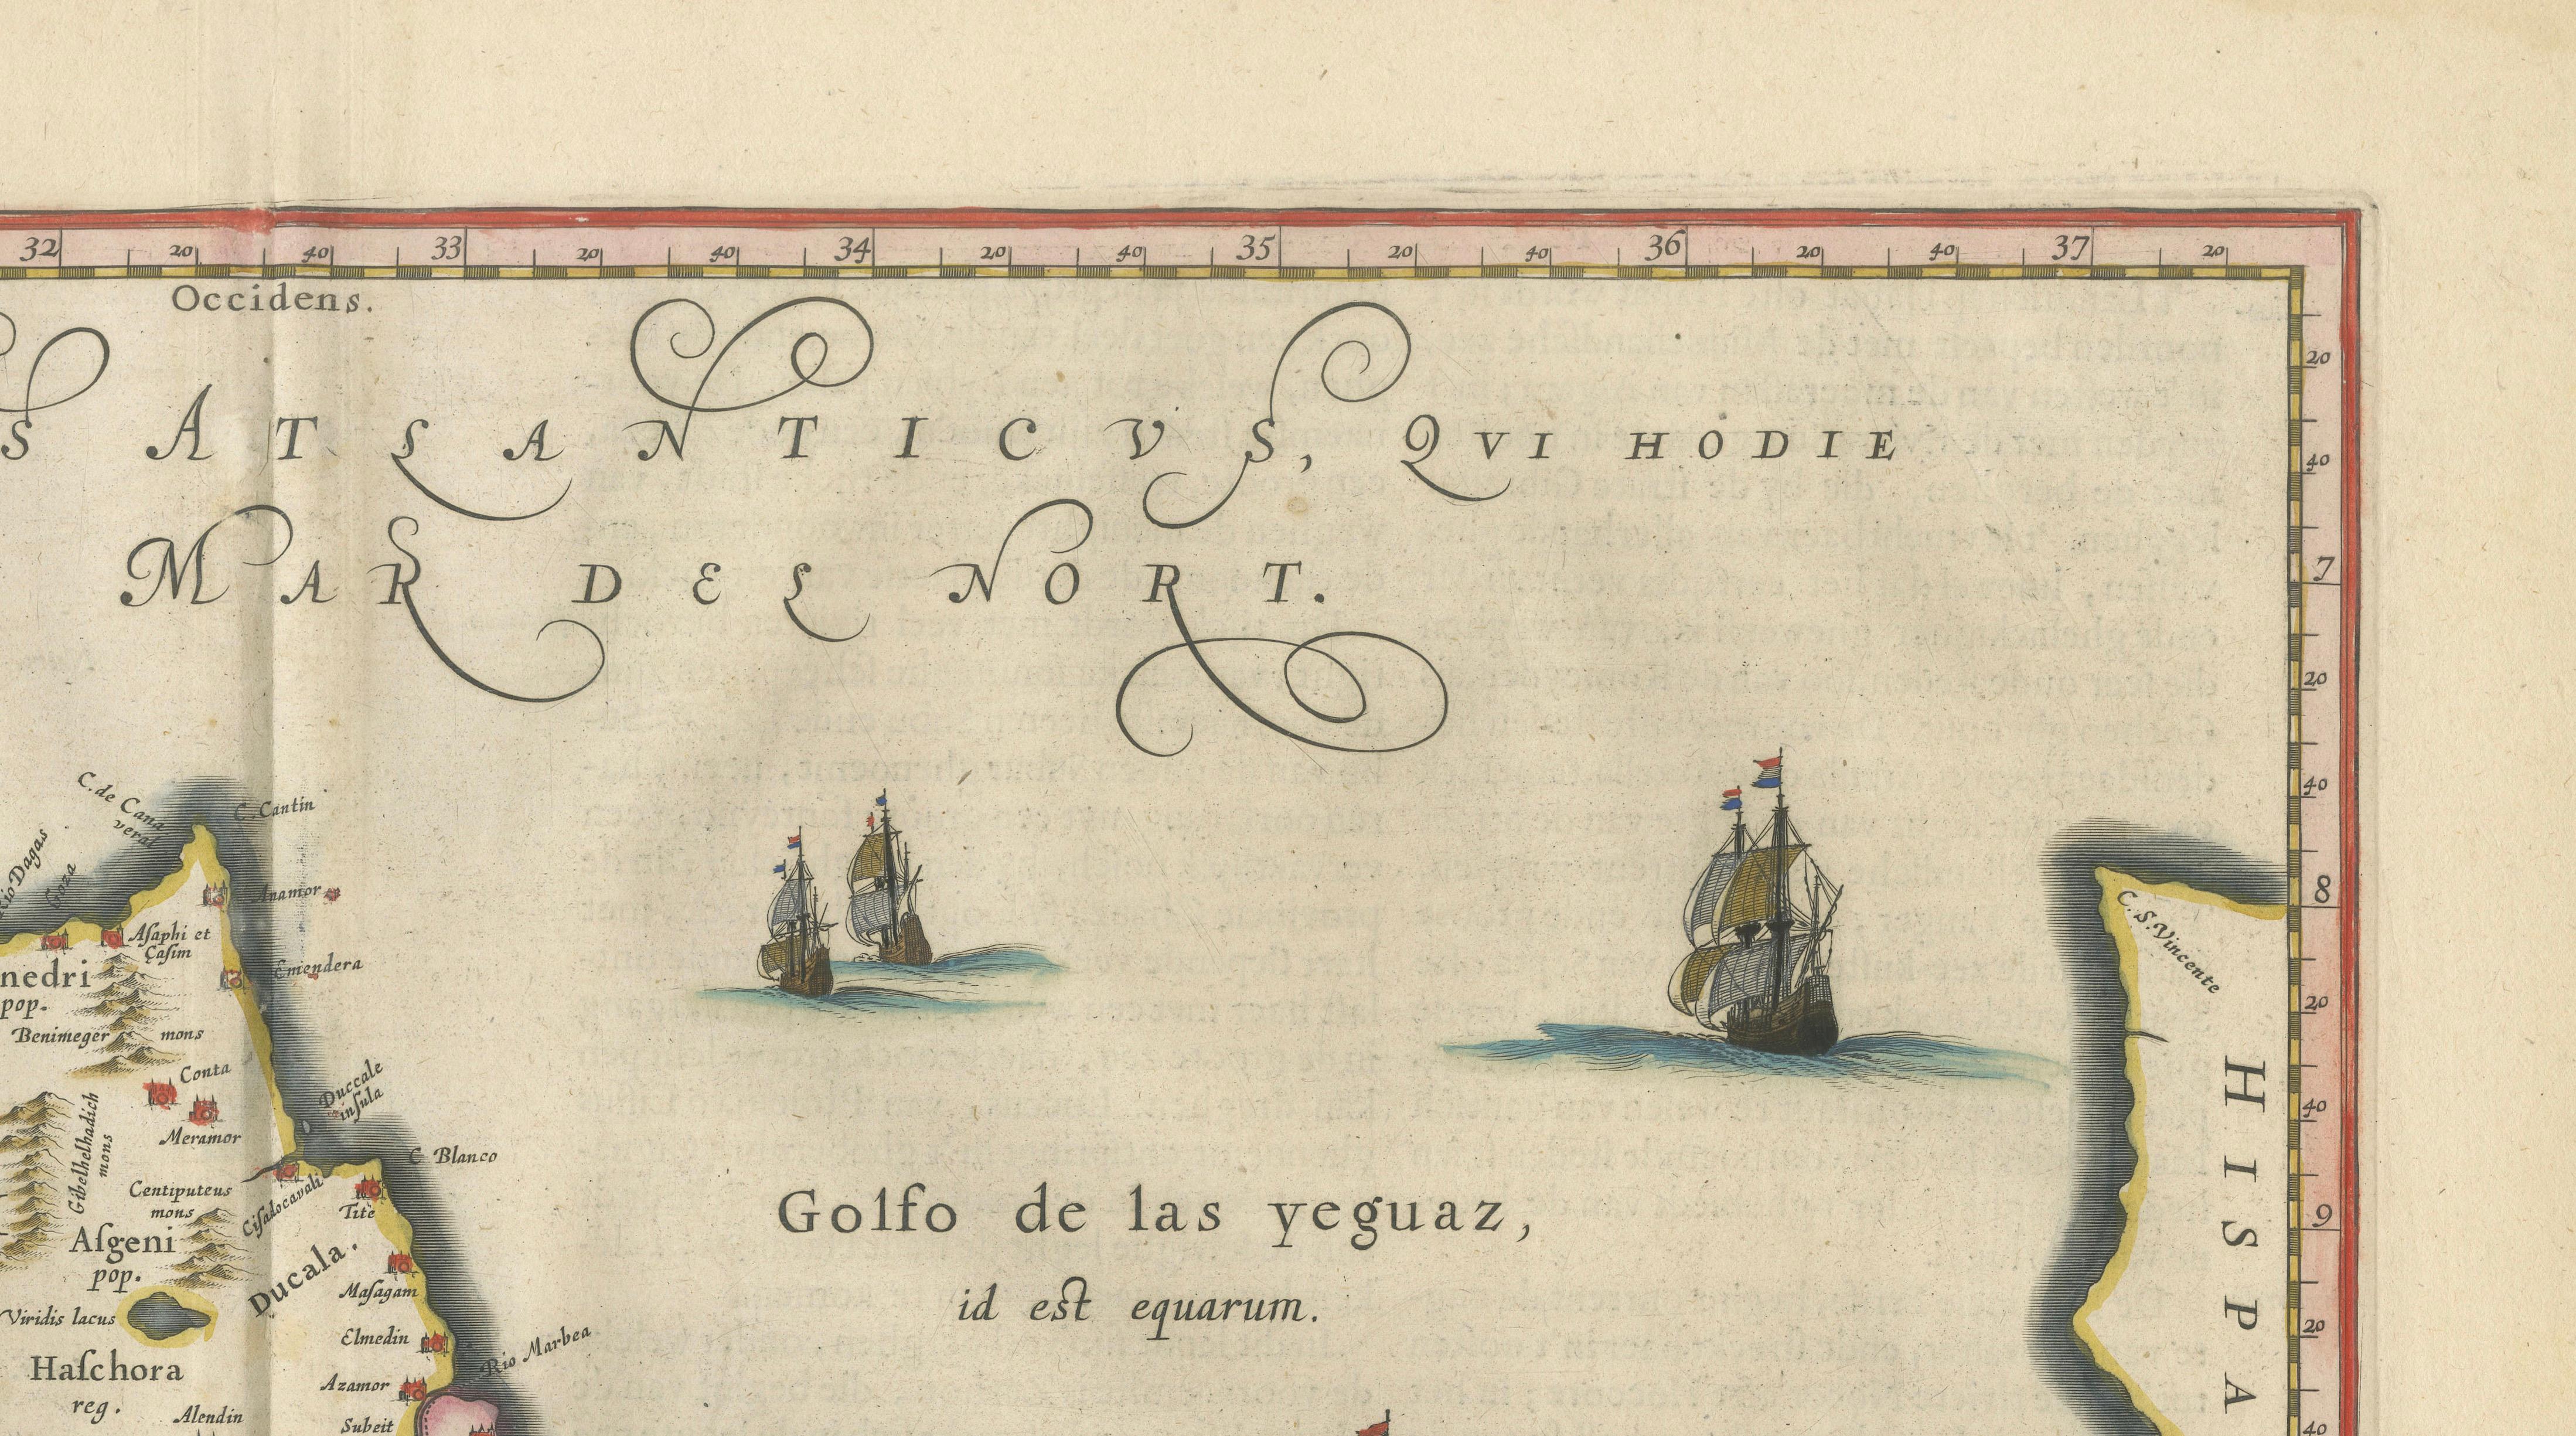 32 20 40 33 20 40 34 20 40 35 20 40 36 20 40 37 20
Occidens.
S ATLANTICVS, QVI HODIE
MAR DEL NORT.
20
40
7
20
40
8
20
40
9
20
40
C. de Cana
veral
C. Cantin
Rio Dagas
Goza
Anamor
Aſaphi et
Caſim
Emendera
nedri
pop.
Benimeger mons
Conta
Meramor
Gibelhelhadich
mons
Duccale
inſula
C. Blanco
Centiputeus
mons
Ciſadocavali
Tite
Aſgeni
pop.
Ducala.
Maſagam
Viridis lacus
Elmedin
Rio Marbea
Haſchora
reg.
Azamor
Alendin
Subeit
Golfo de las yeguaz,
id est equarum.
C. S. Vincente
HISPA